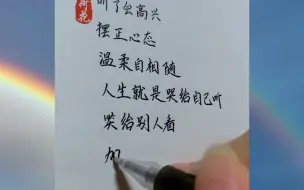 荷花
听了会高兴
摆正心态
温柔自相随
人生就是哭给自己听
笑给别人看
加